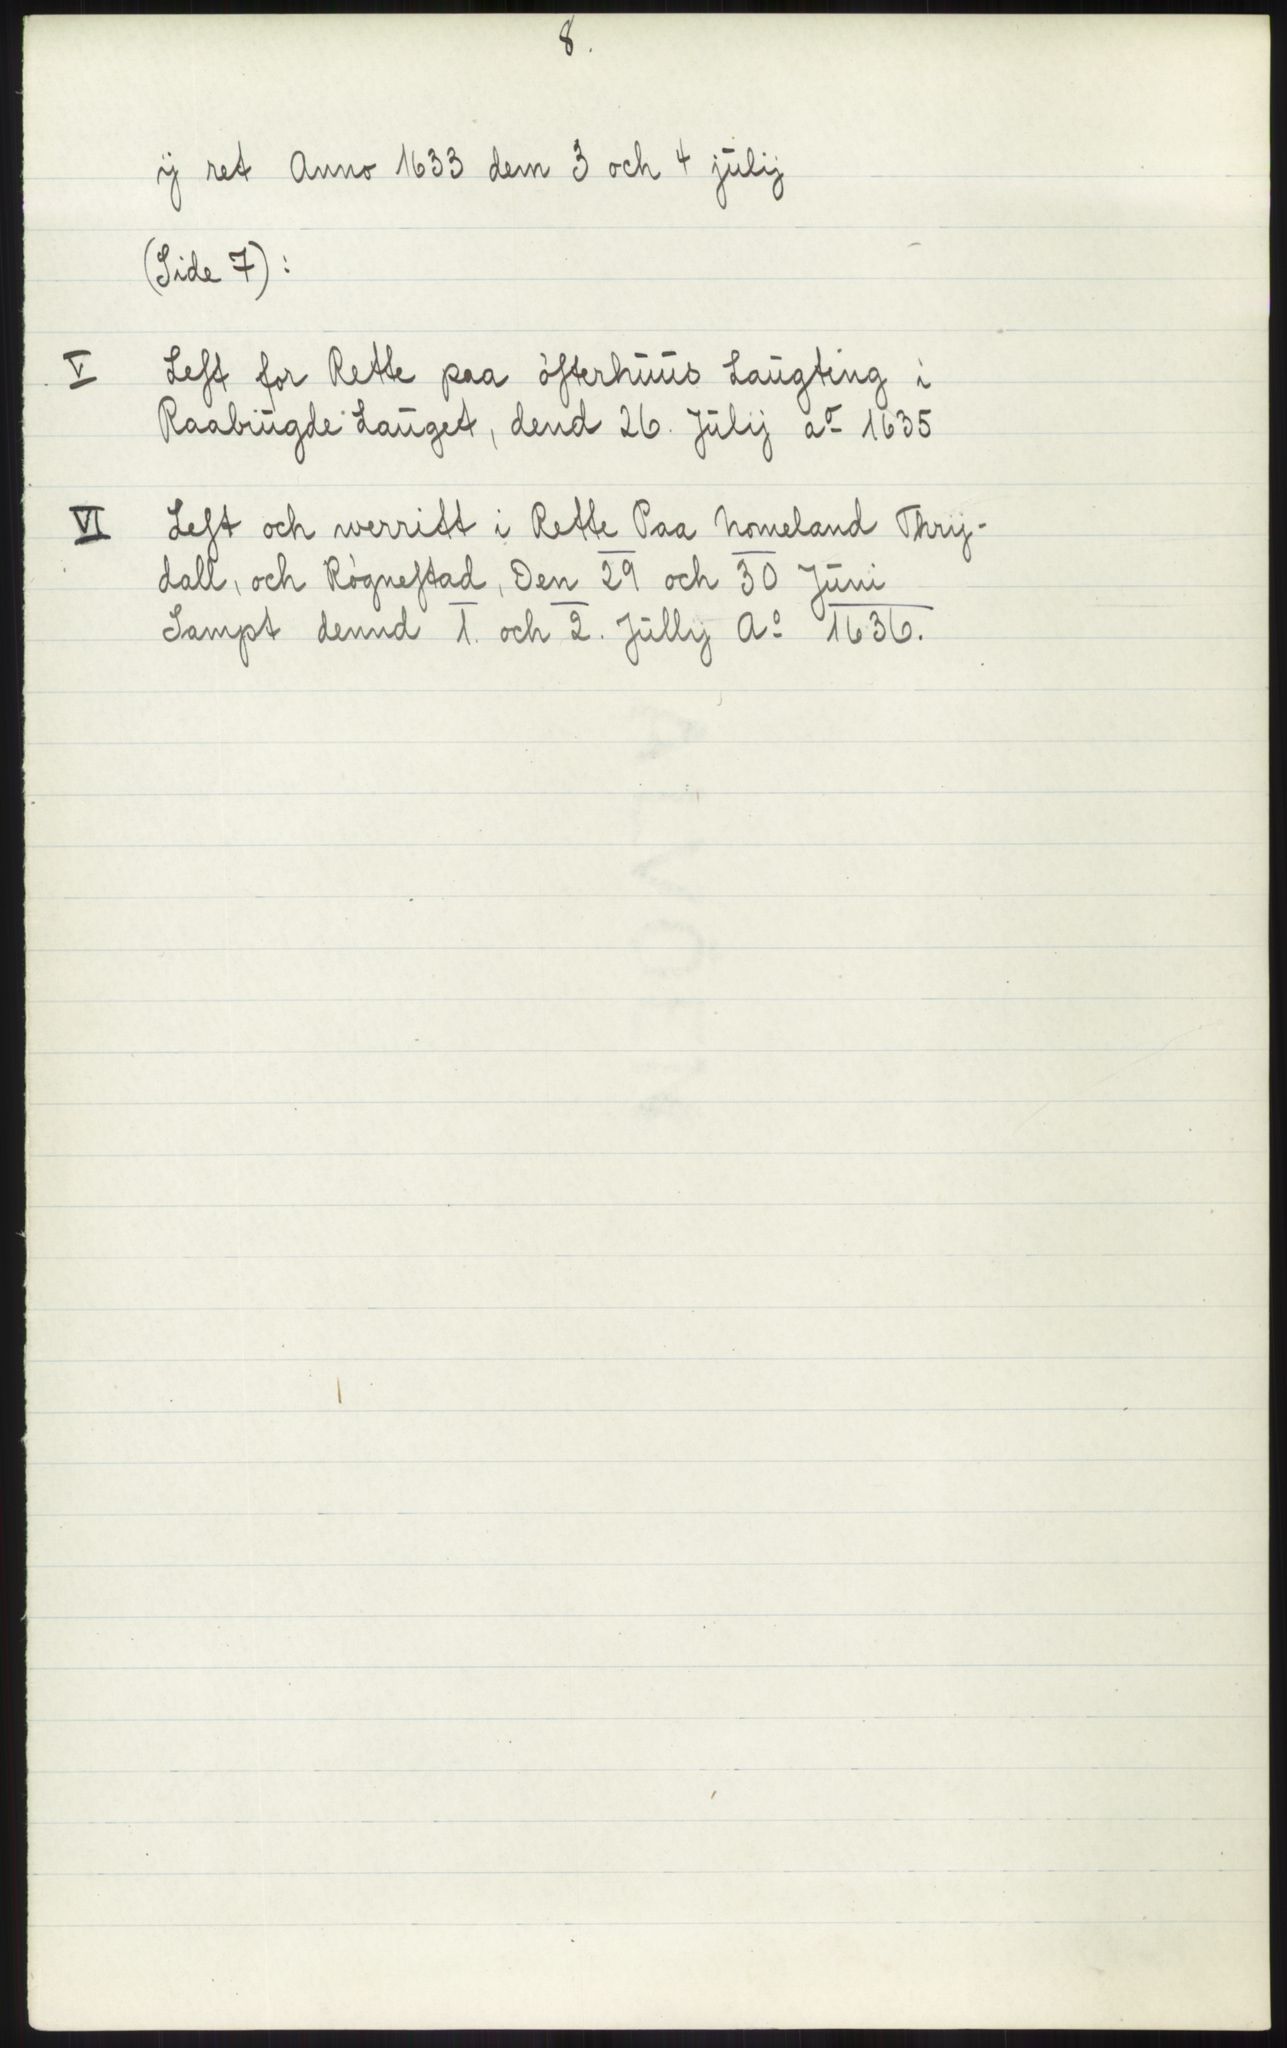 8.
ij ret Anno 1633 dem 3 och 4 júlij
(Side 7):
V Lest for Rette paa òsterhúús Laúgting i
Raabúgde Laúget, dend 26. Júlij ao 1635
VI Lest och werritt i Rette Paa homeland Thrij-
dall, och Rògnestad, Den 29 och 30 Júni
Sampt dennd 1. och 2. Júllij Ao 1636.